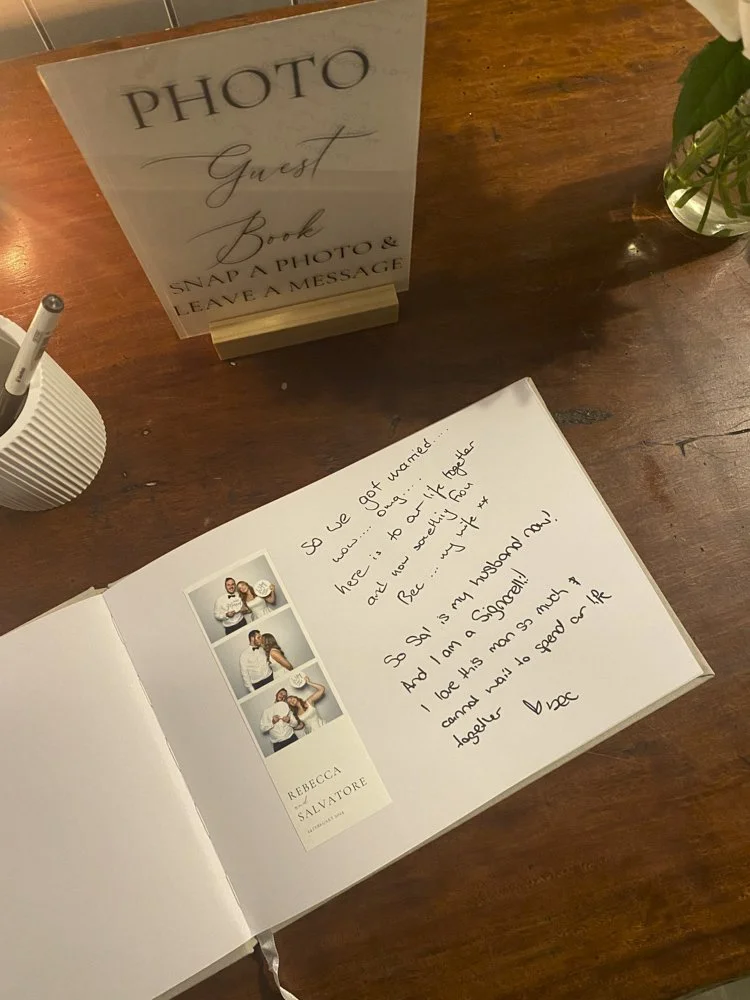 PHOTO
Guest
Book
SNAP A PHOTO &
LEAVE A MESSAGE
So we got married....
wow.... omg....
here is to our life together
and now something from
Bec ... my wife xx
So Sal is my husband now!
And I am a Signorelli!
I love this man so much &
cannot wait to spend our life
together ♡ bec
REBECCA
and
SALVATORE